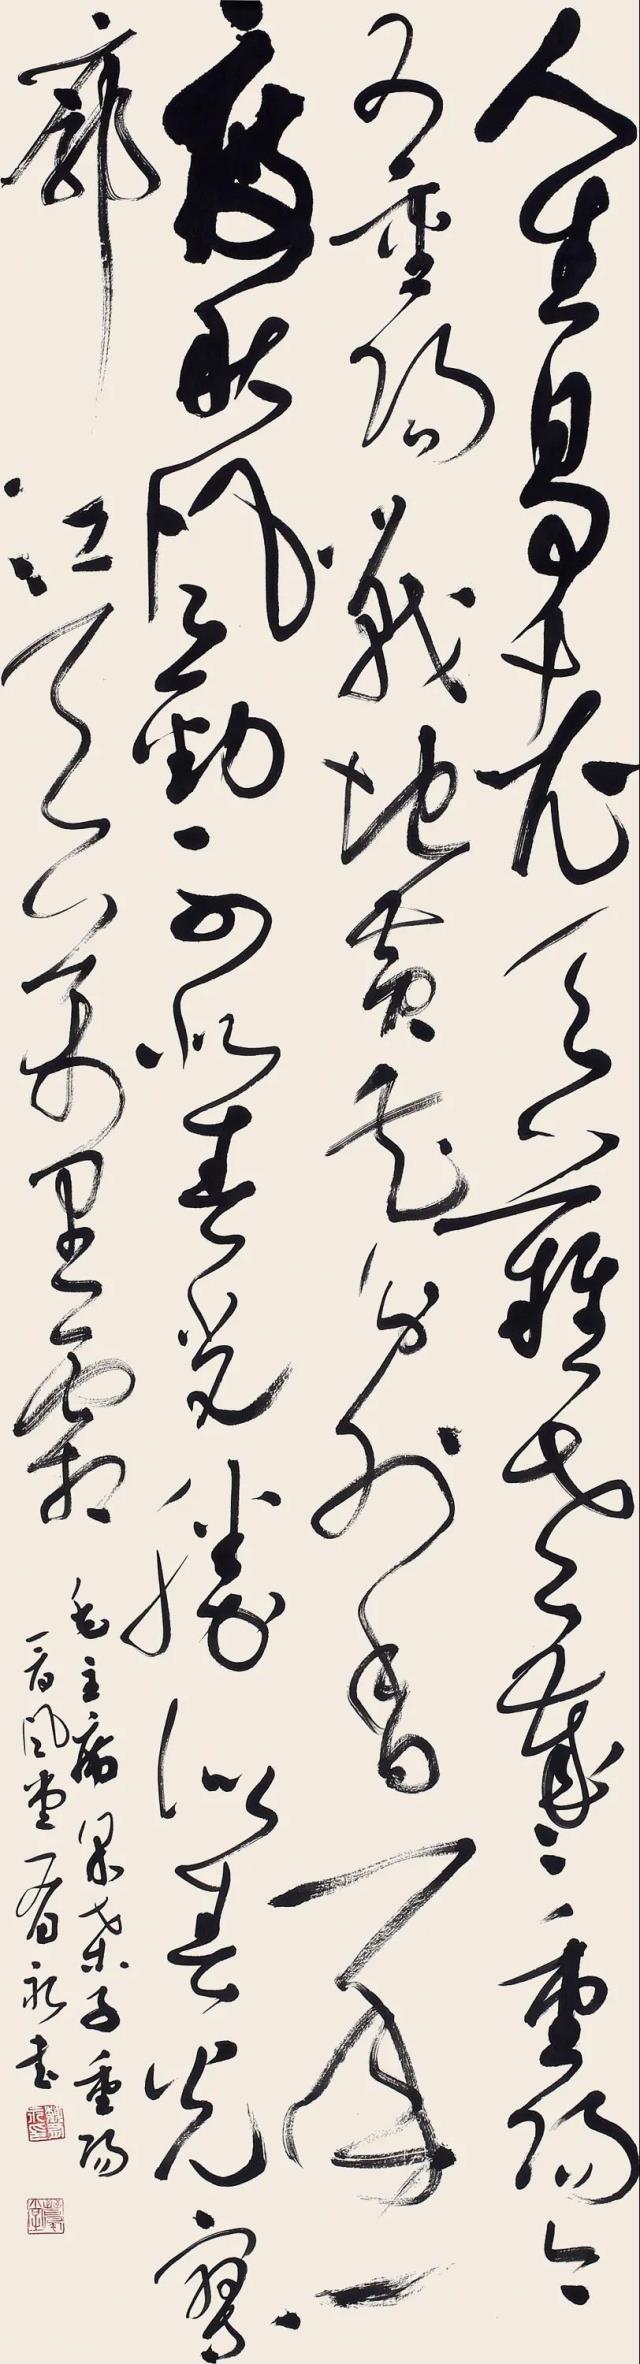 人生易老天难老岁岁重阳今
又重阳战地黄花分外香一年一
度秋风劲不似春光胜似春光寥
廓江天万里霜
毛主席采桑子重阳
晋风堂晋永书